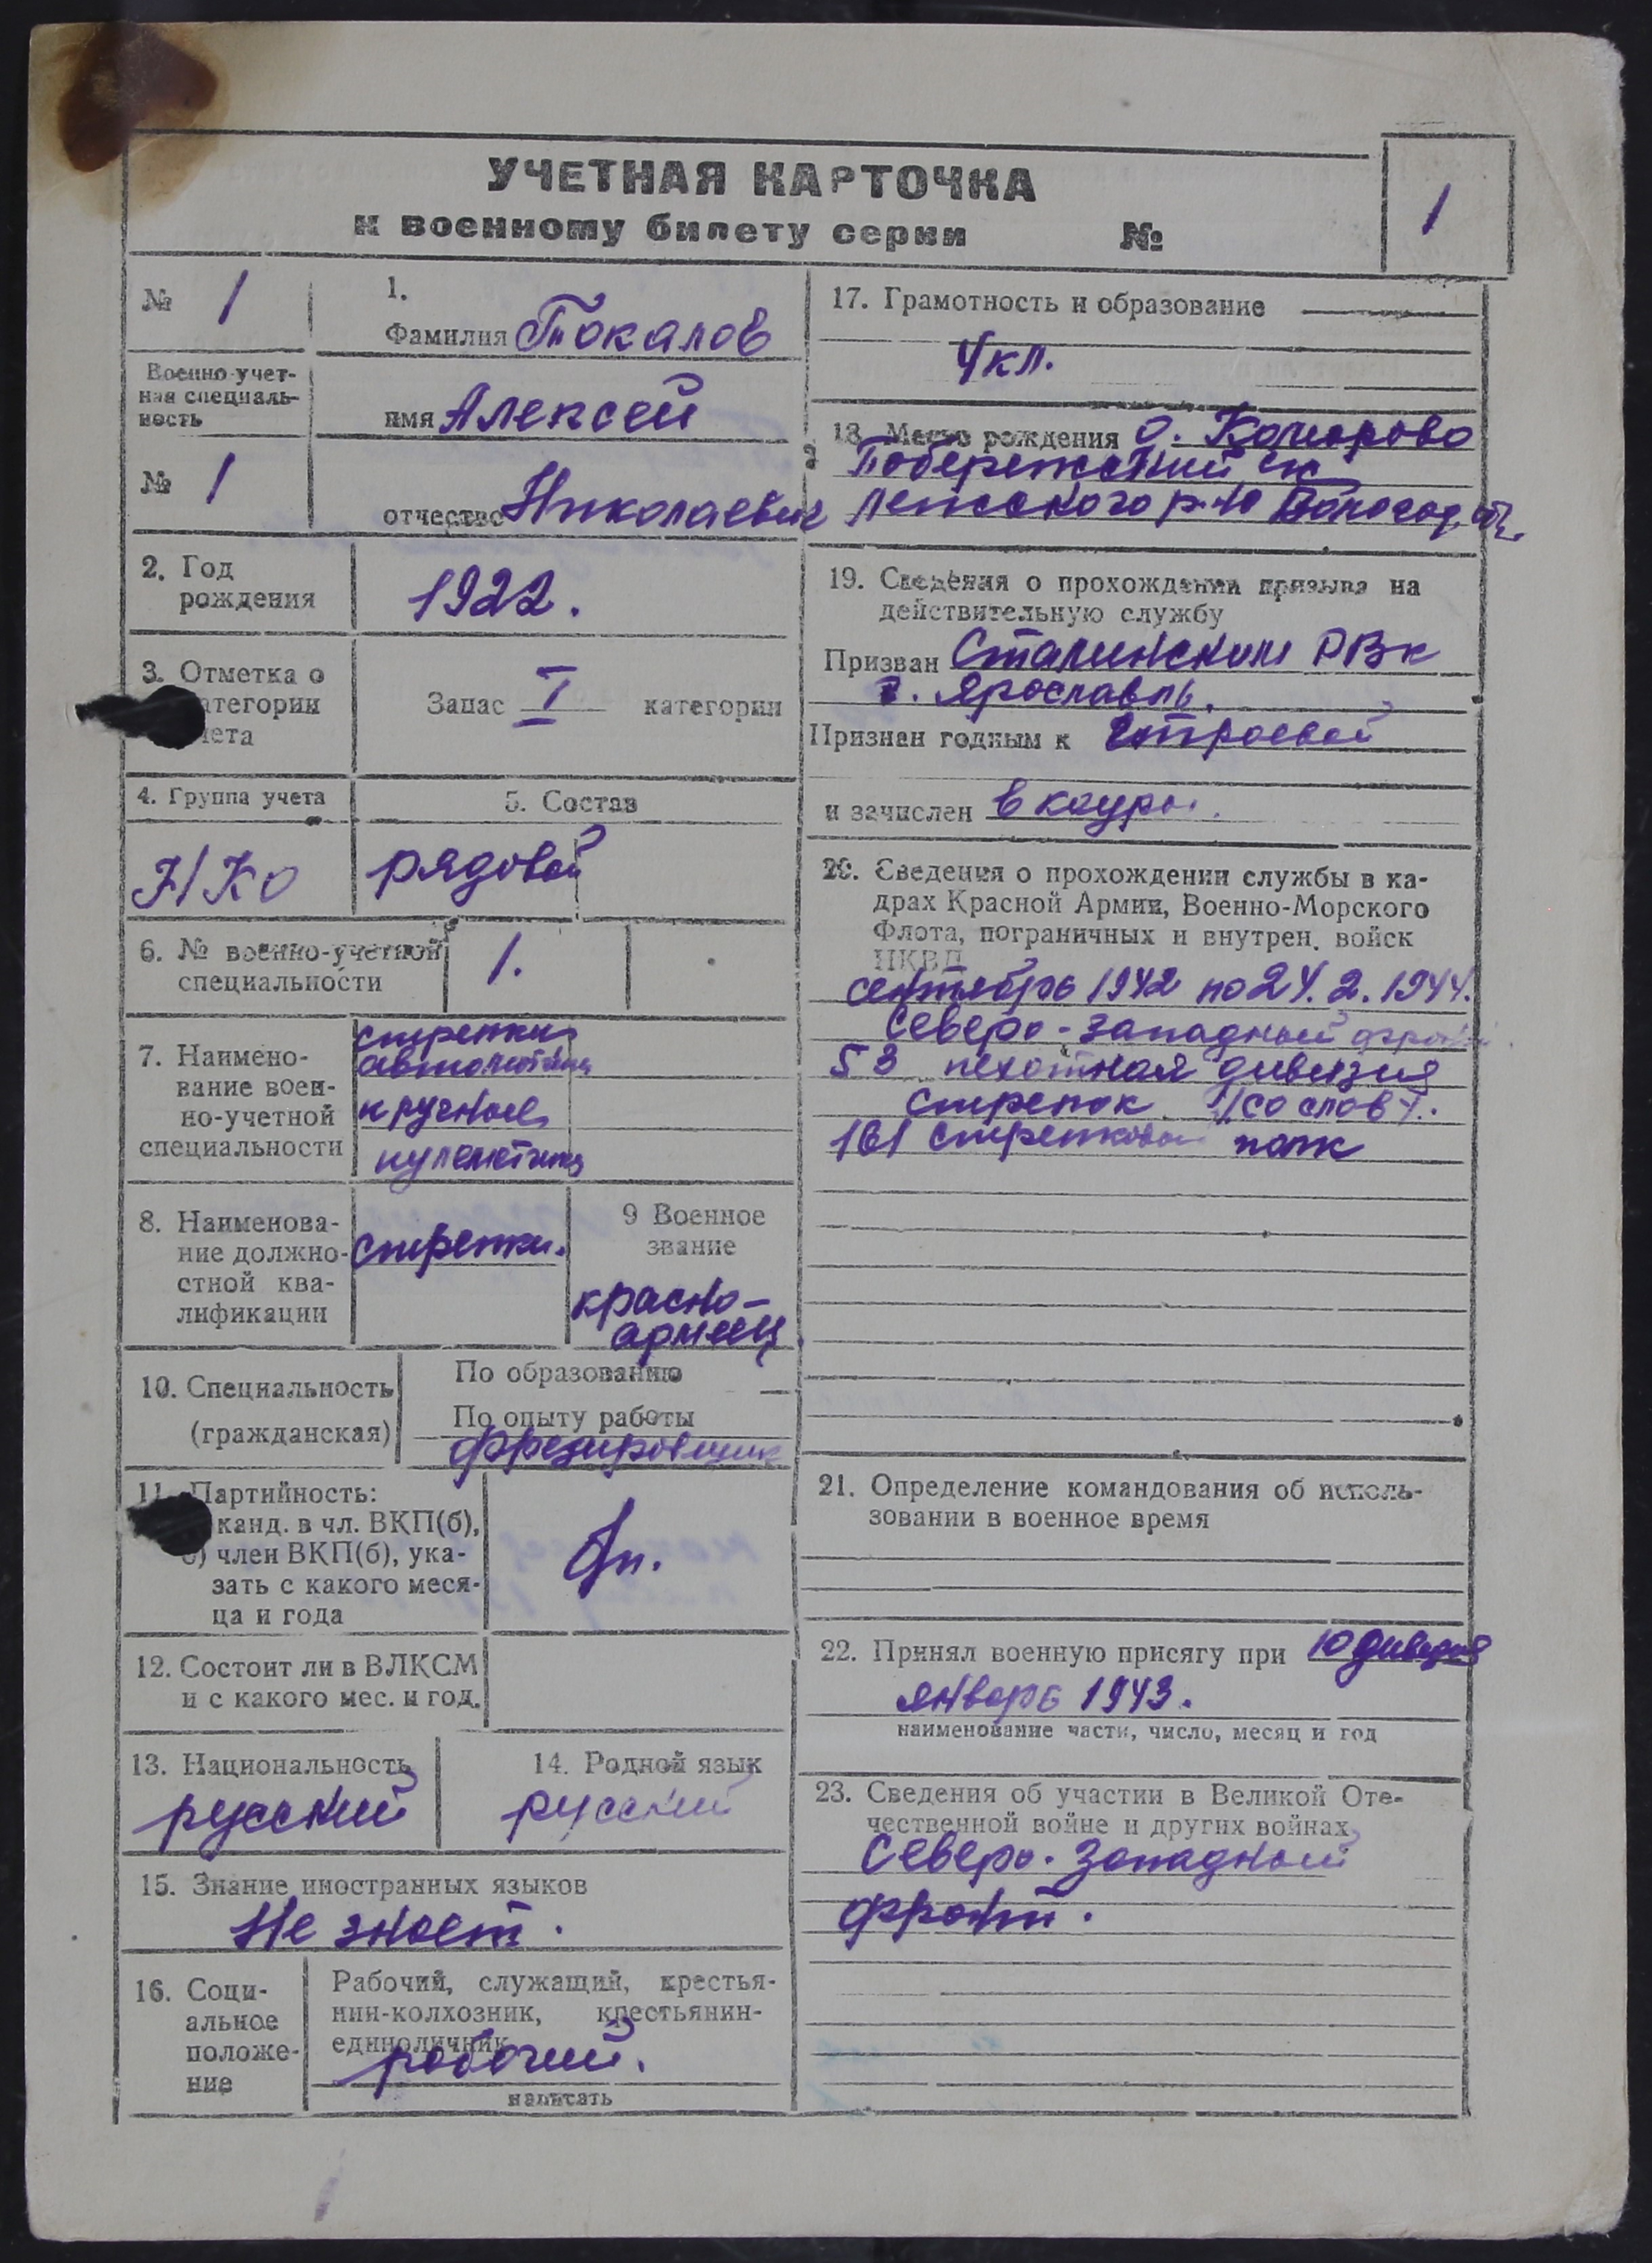 УЧЕТНАЯ КАРТОЧКА
к военному билету серии №
1
№ 1
Военно-учет-
ная специаль-
ность
№ 1
1.
Фамилия Токалов
имя Алексей
отчество Николаевич
2. Год
рождения
1922.
3. Отметка о
атегории
чета
Запас I категории
4. Группа учета
Н/Ко
5. Состав
рядовой
6. № военно-учетной
специальности
1.
7. Наимено-
вание воен-
но-учетной
специальности
стрелки
автоматчики
и ручные
пулеметчики
8. Наименова-
ние должно-
стной ква-
лификации
стрелки.
9 Военное
звание
красно-
армеец
10. Специальность
(гражданская)
По образованию —
По опыту работы
фрезировщик
11. Партийность:
канд. в чл. ВКП(б),
б) член ВКП(б), ука-
зать с какого меся-
ца и года
бп.
12. Состоит ли в ВЛКСМ
и с какого мес. и год.
13. Национальность
русский
14. Родной язык
русский
15. Знание иностранных языков
Не знает.
16. Соци-
альное
положе-
ние
Рабочий, служащий, крестья-
нин-колхозник, крестьянин-
единоличник
рабочий.
написать
17. Грамотность и образование
4 кл.
18. Место рождения д. Комарово
Побережский с/с
Лежского р-на Вологод. обл.
19. Сведения о прохождении призыва на
действительную службу
Призван Сталинским РВк
г. Ярославль.
Признан годным к строевой
и зачислен в кадры.
20. Сведения о прохождении службы в ка-
драх Красной Армии, Военно-Морского
Флота, пограничных и внутрен. войск
НКВД
сентябрь 1942 по 24.2.1944.
Северо-западный фронт
53 пехотная дивизия
стрелок (со слов).
161 стрелковый полк
21. Определение командования об исполь-
зовании в военное время
22. Принял военную присягу при 10 дивизия
январь 1943.
наименование части, число, месяц и год
23. Сведения об участии в Великой Оте-
чественной войне и других войнах
Северо-Западный
фронт.